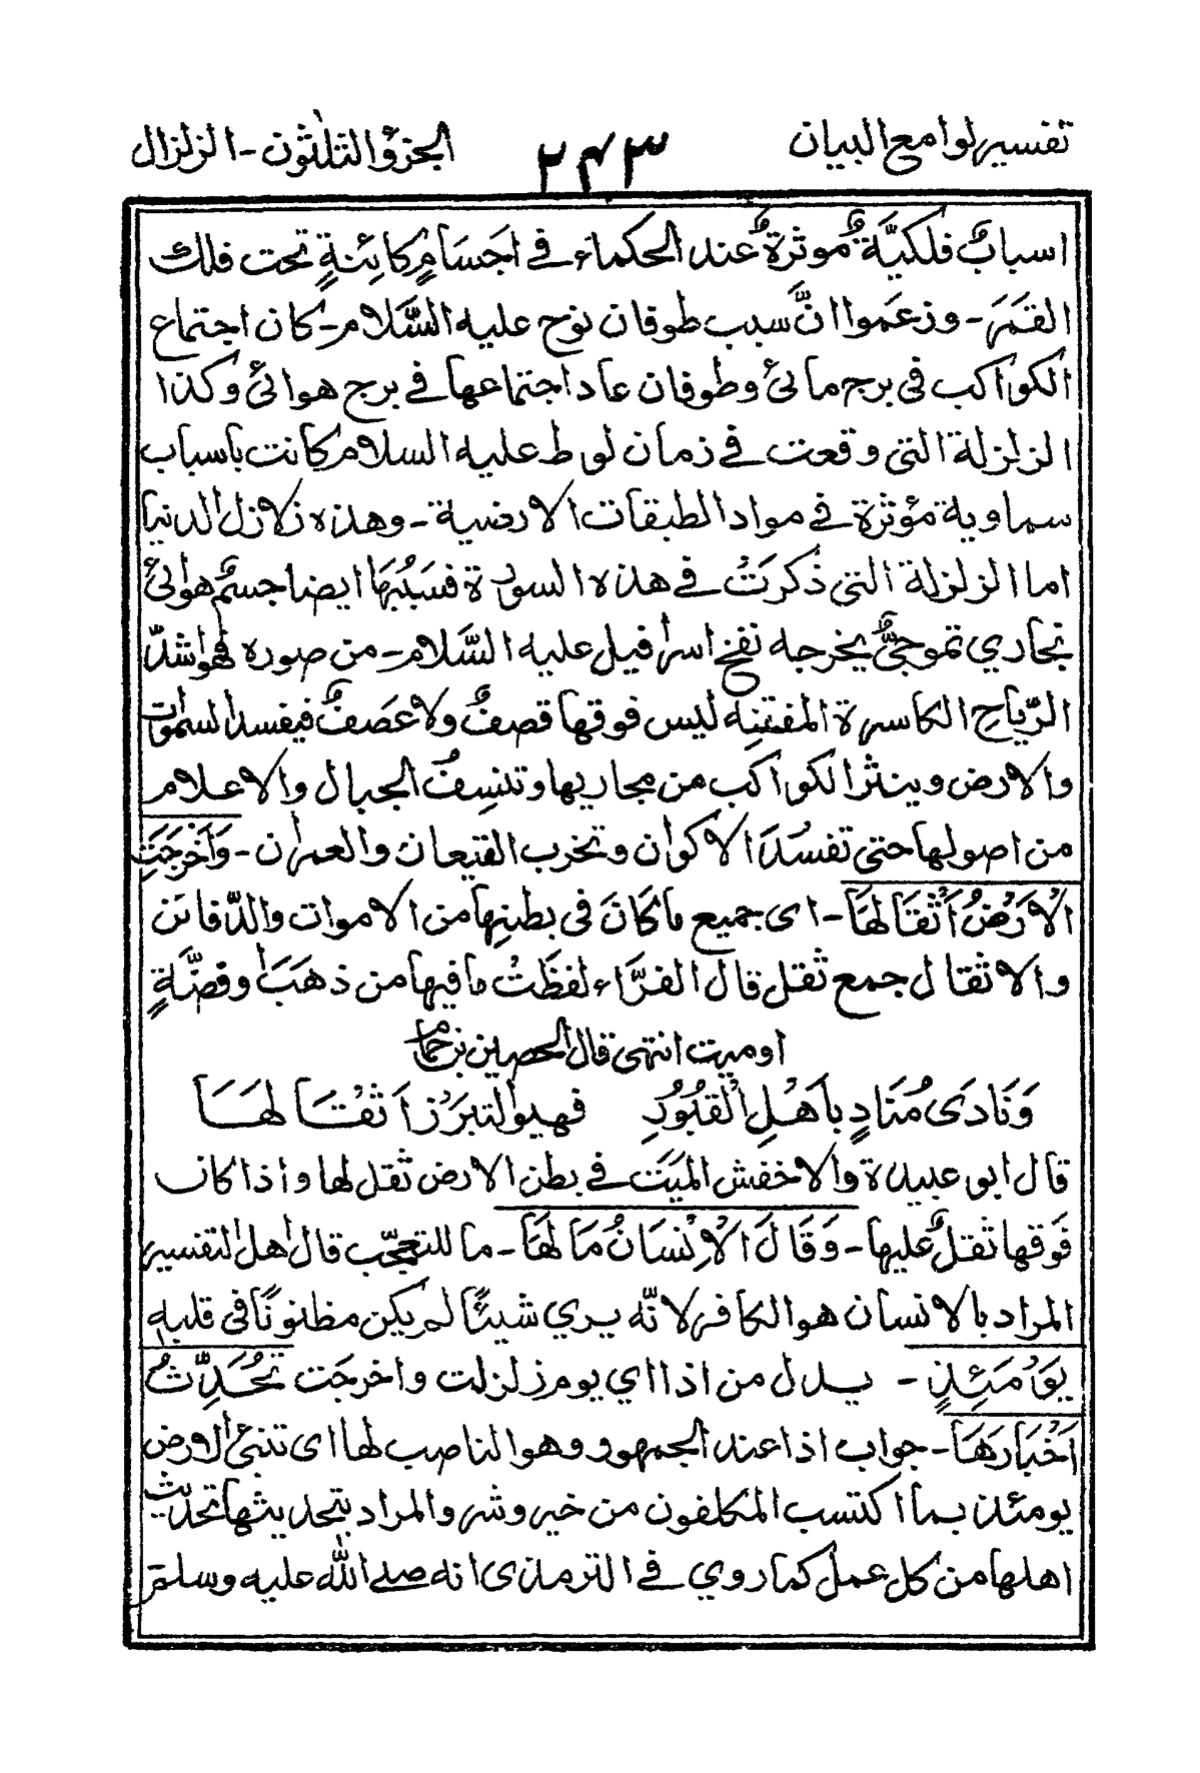 تفسير لوامع البيان ٢٤٣ الجزؤ الثلٰثون - الزلزال
اسبابٌ فلكيَّةٌ موثرةٌ عند الحكماء في اَجسَامٍ كائِنةٍ تحت فلك
القمَر - وزعَموا انَّ سبب طوفان نوح عليه السَّلام - كان اجتماع
الكواكب فى برج مائ وطوفان عاد اجتماعها في برج هوائ وكذا
الزلزلة التى وقعت في زمان لوط عليه السلام كانت باسباب
سماوية مؤثرة في مواد الطبقات الارضية - وهذه زلازل الدنيا
اما الزلزلة التى ذُكرَتْ في هذه السورة فسَبَبُهَا ايضا جسمٌ هوائ
بخاري تموجىٌّ يخرجه نفخ اسرافيل عليه السَّلام - من صوره فهو اشدّ
الرّياح الكاسرة المفتنِه ليس فوقها قصفٌ ولا عصَفٌ فيفسد السمٰوات
والارض وينثر الكواكب من مجاريها وتنسِفُ الجبال والاعلام
من اصولها حتى تفسُدَ الاكوان وتخرب القيعان والعمران - وَاَخْرَجَتِ
الْاَرْضُ اَثْقَالَهَا - اى جميع ما كانَ فى بطنِها من الاموات والدّفائن
والاثقال جمع ثقل قال الفرَّاء لفظَتْ ما فيها من ذهَبَ وفضَّةٍ
اوميت انتهى قال الحصين بن حمام
وَنَادَى مُنَادٍ بأَهْلِ الْقبُورِ فهبوا لتبرَزْ اَثقْالَهَا
قال ابو عبيدة والاخفش الميَت في بطن الارض ثقل لها واذا كان
فَوقها ثقلٌ عليها - وَقَالَ الْاِنْسَانُ مَا لَهَا - ما للتعجّب قال اهل التفسير
المراد بالانسان هو الكافر لانّه يري شيئًا لم يكن مظنونًا فى قلبه
يَوْمَئِذٍ - بدل من اذا اي يوم زلزلت واخرجَت تُحَدِّثُ
اَخْبَارَهَا - جواب اذا عند الجمهور وهو الناصب لها اى تنبئ الارض
يومئذ بما اكتسب المكلفون من خير وشر والمراد بتحديثها تحديث
اهلها من كل عمل كما روي في الترمذى انه صلے اللّٰه عليه وسلم